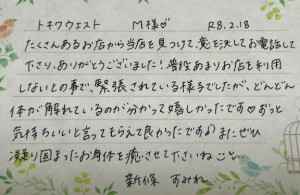 トキワウエスト M様♂ R8.2.18
たくさんあるお店から当店を見つけて、意を決してお電話して
下さり、ありがとうございました!普段あまりお店を利用
しないとの事で、緊張されている様子でしたが、どんどん
体が解れているのが分かって嬉しかったです♡ずっと
気持ちいいと言ってもらえて良かったです♪またぜひ
凝り固まったお身体を癒させて下さいね
新條 すみれ